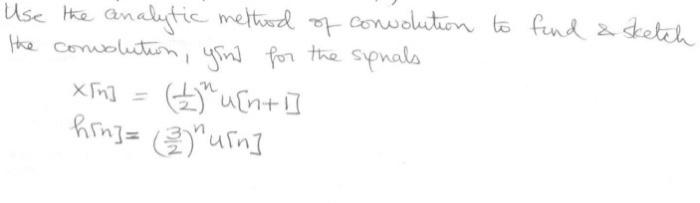 Use the analytic method of convolution to find & sketch
the convolution, y[n] for the signals
x[n] = (1/2)^n u[n+1]
h[n] = (3/2)^n u[n]